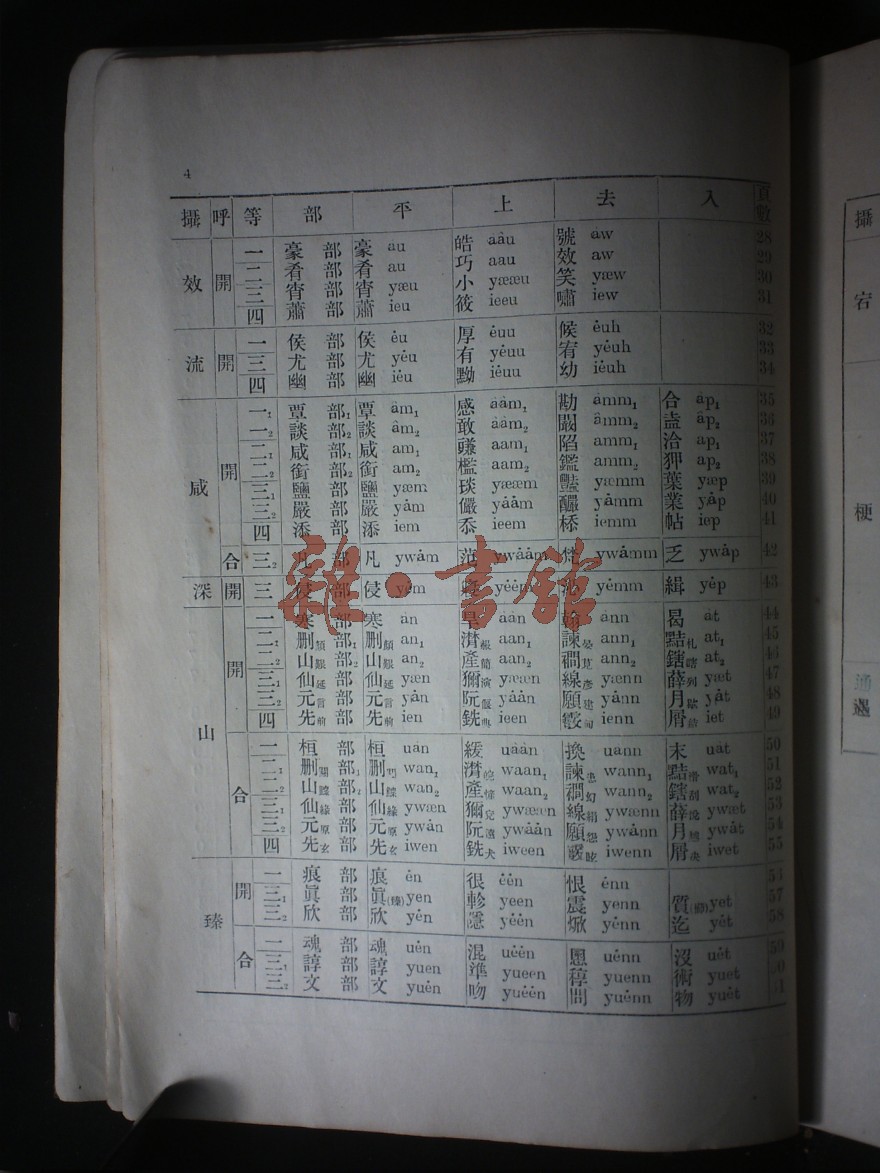 4
攝 呼 等 部 平 上 去 入 頁數
效 開 一 豪部 豪 âu 皓 aâu 號 âw 28
二 肴部 肴 au 巧 aau 效 aw 29
三 宵部 宵 yæu 小 yææu 笑 yæw 30
四 蕭部 蕭 ieu 篠 ieeu 嘯 iew 31
流 開 一 侯部 侯 ėu 厚 ėuu 候 ėuh 32
三 尤部 尤 yėu 有 yėuu 宥 yėuh 33
四 幽部 幽 iėu 黝 iėuu 幼 iėuh 34
咸 開 一₁ 覃部₁ 覃 âm₁ 感 aâm₁ 勘 âmm₁ 合 âp₁ 35
一₂ 談部₂ 談 âm₂ 敢 aâm₂ 闞 âmm₂ 盍 âp₂ 36
二₁ 咸部₁ 咸 am₁ 豏 aam₁ 陷 amm₁ 洽 ap₁ 37
二₂ 銜部₂ 銜 am₂ 檻 aam₂ 鑑 amm₂ 狎 ap₂ 38
三₁ 鹽部 鹽 yæm 琰 yææm 豔 yæmm 葉 yæp 39
三₂ 嚴部 嚴 yȧm 儼 yȧȧm 釅 yȧmm 業 yȧp 40
四 添部 添 iem 忝 ieem 㮇 iemm 帖 iep 41
合 三₂ 凡部 凡 ywȧm 范 ywȧȧm 梵 ywȧmm 乏 ywȧp 42
深 開 三 侵部 侵 yėm yėėm yėmm 緝 yėp 43
山 開 一 寒部 寒 ân 旱 aân 翰 ânn 曷 ât 44
二₁ 刪顏部₁ 刪顏 an₁ 潸赧 aan₁ 諫晏 ann₁ 黠札 at₁ 45
二₂ 山艱部₂ 山艱 an₂ 產簡 aan₂ 襉莧 ann₂ 鎋瞎 at₂ 46
三₁ 仙延部 仙延 yæn 獮演 yææn 線彥 yænn 薛列 yæt 47
三₂ 元言部 元言 yȧn 阮偃 yȧȧn 願建 yȧnn 月歇 yȧt 48
四 先前部 先前 ien 銑典 ieen 霰 ienn 屑 iet 49
合 一 桓部 桓 uân 緩 uaân 換 uânn 末 uât 50
二₁ 刪關部₁ 刪關 wan₁ 潸 waan₁ 諫患 wann₁ 黠滑 wat₁ 51
二₂ 山鰥部₂ 山鰥 wan₂ 產 waan₂ 襉幻 wann₂ 鎋刮 wat₂ 52
三₁ 仙緣部 仙緣 ywæn 獮兗 ywææn 線絹 ywænn 薛 ywæt 53
三₂ 元原部 元原 ywȧn 阮遠 ywȧȧn 願怨 ywȧnn 月越 ywȧt 54
四 先玄部 先玄 iwen 銑犬 iween 霰眩 iwenn 屑決 iwet 55
臻 開 一 痕部 痕 ėn 很 ėėn 恨 ėnn
三₁ 眞部 眞(臻) yen 軫 yeen 震 yenn 質(櫛) yet 57
三₂ 欣部 欣 yėn 隱 yėėn 焮 yėnn 迄 yėt 58
合 一 魂部 魂 uėn 混 uėėn 慁 uėnn 沒 uėt 59
三₁ 諄部 諄 yuen 準 yueen 稕 yuenn 術 yuet
三₂ 文部 文 yuėn 吻 yuėėn 問 yuėnn 物 yuėt
雜·書館
攝
宕
梗
通
遇